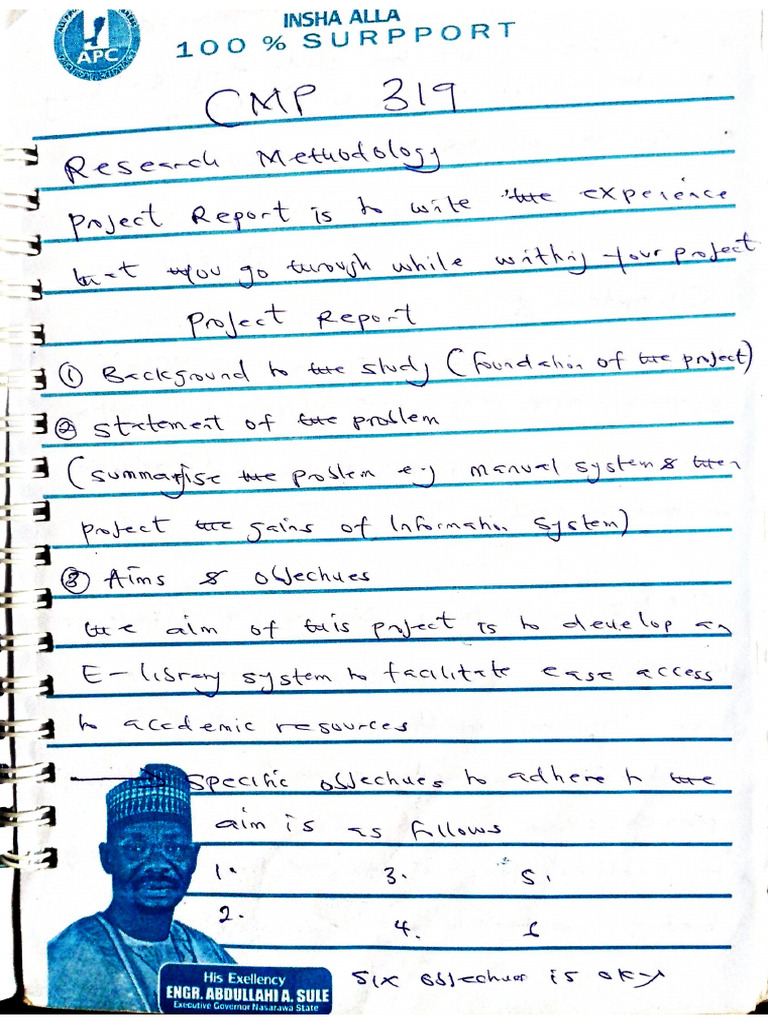 INSHA ALLA
100 % SURPPORT
APC
CMP 319
Research Methodology
Project Report is to write the experience
that you go through while writing your project
Project Report
① Background to the study (foundation of the project)
② Statement of the problem
(summarise the problem e.g manual system & then
project the gains of Information System)
③ Aims & objectives
the aim of this project is to develop an
E-library system to facilitate ease access
to academic resources
→ Specific objectives to adhere to the
aim is as follows
1. 3. 5.
2. 4. 6
Six objectives is okay
His Exellency
ENGR. ABDULLAHI A. SULE
Executive Governor Nasarawa State